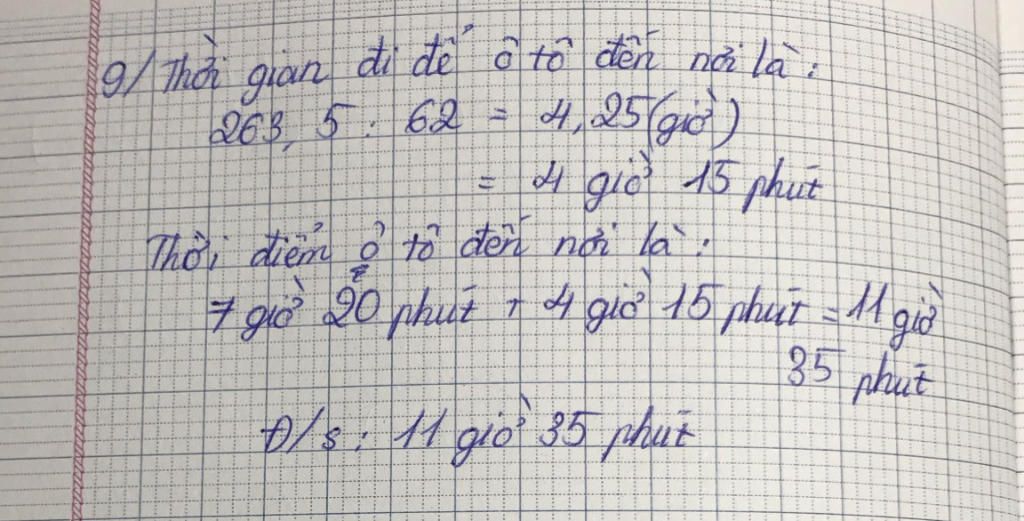 9/ Thời gian đi để ô tô đến nơi là:
263,5 : 62 = 4,25 (giờ)
= 4 giờ 15 phút
Thời điểm ô tô đến nơi là:
7 giờ 20 phút + 4 giờ 15 phút = 11 giờ
35 phút
Đ/s: 11 giờ 35 phút